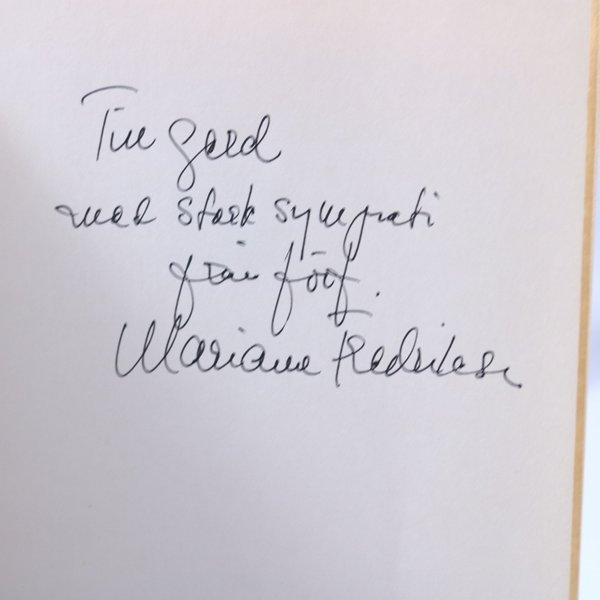 Till Gerd
med stark sympati
från förf.
Marianne Fredriksson